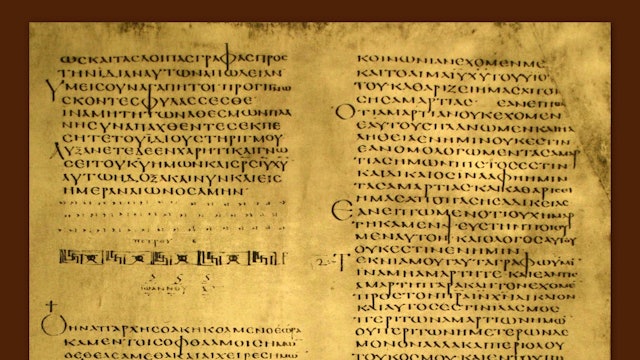 ΩϹΚΑΙΤΑϹΛΟΙΠΑϹΓΡΑΦΑϹΠΡΟϹ
ΤΗΝΙΔΙΑΝΑΥΤΩΝΑΠΩΛΕΙΑΝ
ΥΜΕΙϹΟΥΝΑΓΑΠΗΤΟΙΠΡΟΓΙΝΩ
ϹΚΟΝΤΕϹΦΥΛΑϹϹΕϹΘΕ
ΙΝΑΜΗΤΗΤΩΝΑΘΕϹΜΩΝΠΛΑ
ΝΗϹΥΝΑΠΑΧΘΕΝΤΕϹΕΚΠΕ
ϹΗΤΕΤΟΥΙΔΙΟΥϹΤΗΡΙΓΜΟΥ
ΑΥΞΑΝΕΤΕΔΕΕΝΧΑΡΙΤΙΚΑΙΓΝΩ
ϹΕΙΤΟΥΚΥΗΜΩΝΚΑΙϹΡϹΙΥΧΥ
ΑΥΤΩΗΔΟΞΑΚΑΙΝΥΝΚΑΙΕΙϹ
ΗΜΕΡΑΝΑΙΩΝΟϹΑΜΗΝ
ΠΕΤΡΟΥ
ΙΩΑΝΝΟΥ
ΟΗΝΑΠΑΡΧΗϹΟΑΚΗΚΟΑΜΕΝΟΕΩΡΑ
ΚΑΜΕΝΤΟΙϹΟΦΘΑΛΜΟΙϹΗΜΩ
ΟΕΘΕΑϹΑΜΕΘΑΚΑΙΑΙΧΕΙΡΕϹΗΜΩ
ΚΟΙΝΩΝΙΑΝΕΧΟΜΕΝΜΕ
ΚΑΙΤΟΑΙΜΑΙΥΧΥΤΟΥΥΙΟΥ
ΤΟΥΚΑΘΑΡΙΖΕΙΗΜΑϹΑΠΟΠΑ
ϹΗϹΑΜΑΡΤΙΑϹ ΕΑΝΕΙΠΩ
ΟΤΙΑΜΑΡΤΙΑΝΟΥΚΕΧΟΜΕΝ
ΕΑΥΤΟΥϹΠΛΑΝΩΜΕΝΚΑΙΗΑ
ΛΗΘΕΙΑΕΝΗΜΙΝΟΥΚΕϹΤΙΝ
ΕΑΝΟΜΟΛΟΓΩΜΕΝΤΑϹΑΜΑΡ
ΤΙΑϹΗΜΩΝΠΙϹΤΟϹΕϹΤΙΝ
ΚΑΙΔΙΚΑΙΟϹΙΝΑΑΦΗΗΜΙΝ
ΤΑϹΑΜΑΡΤΙΑϹΚΑΙΚΑΘΑΡΙϹΗ
ΗΜΑϹΑΠΟΠΑϹΗϹΑΔΙΚΕΙΑϹ
ΕΑΝΕΙΠΩΜΕΝΟΤΙΟΥΧΗΜΑΡ
ΤΗΚΑΜΕΝΨΕΥϹΤΗΝΠΟΙΟΥ
ΜΕΝΑΥΤΟΝΚΑΙΟΛΟΓΟϹΑΥΤΟΥ
ΟΥΚΕϹΤΙΝΕΝΗΜΙΝ
ΤΕΚΝΙΑΜΟΥΤΑΥΤΑΓΡΑΦΩΥΜΙ
ΙΝΑΜΗΑΜΑΡΤΗΤΕΚΑΙΕΑΝΤΙϹ
ΑΜΑΡΤΗΠΑΡΑΚΛΗΤΟΝΕΧΟΜΕ
ΠΡΟϹΤΟΝΠΡΑΙΝΧΝΔΙΚΑΙΟΝ
ΚΑΙΑΥΤΟϹΕϹΤΙΝΙΛΑϹΜΟϹ
ΠΕΡΙΤΩΝΑΜΑΡΤΙΩΝΗΜΩ
ΟΥΠΕΡΙΤΩΝΗΜΕΤΕΡΩΝΔΕ
ΜΟΝΟΝΑΛΛΑΚΑΙΠΕΡΙΟΛΟΥ
ΤΟΥΚΟϹΜΟΥ